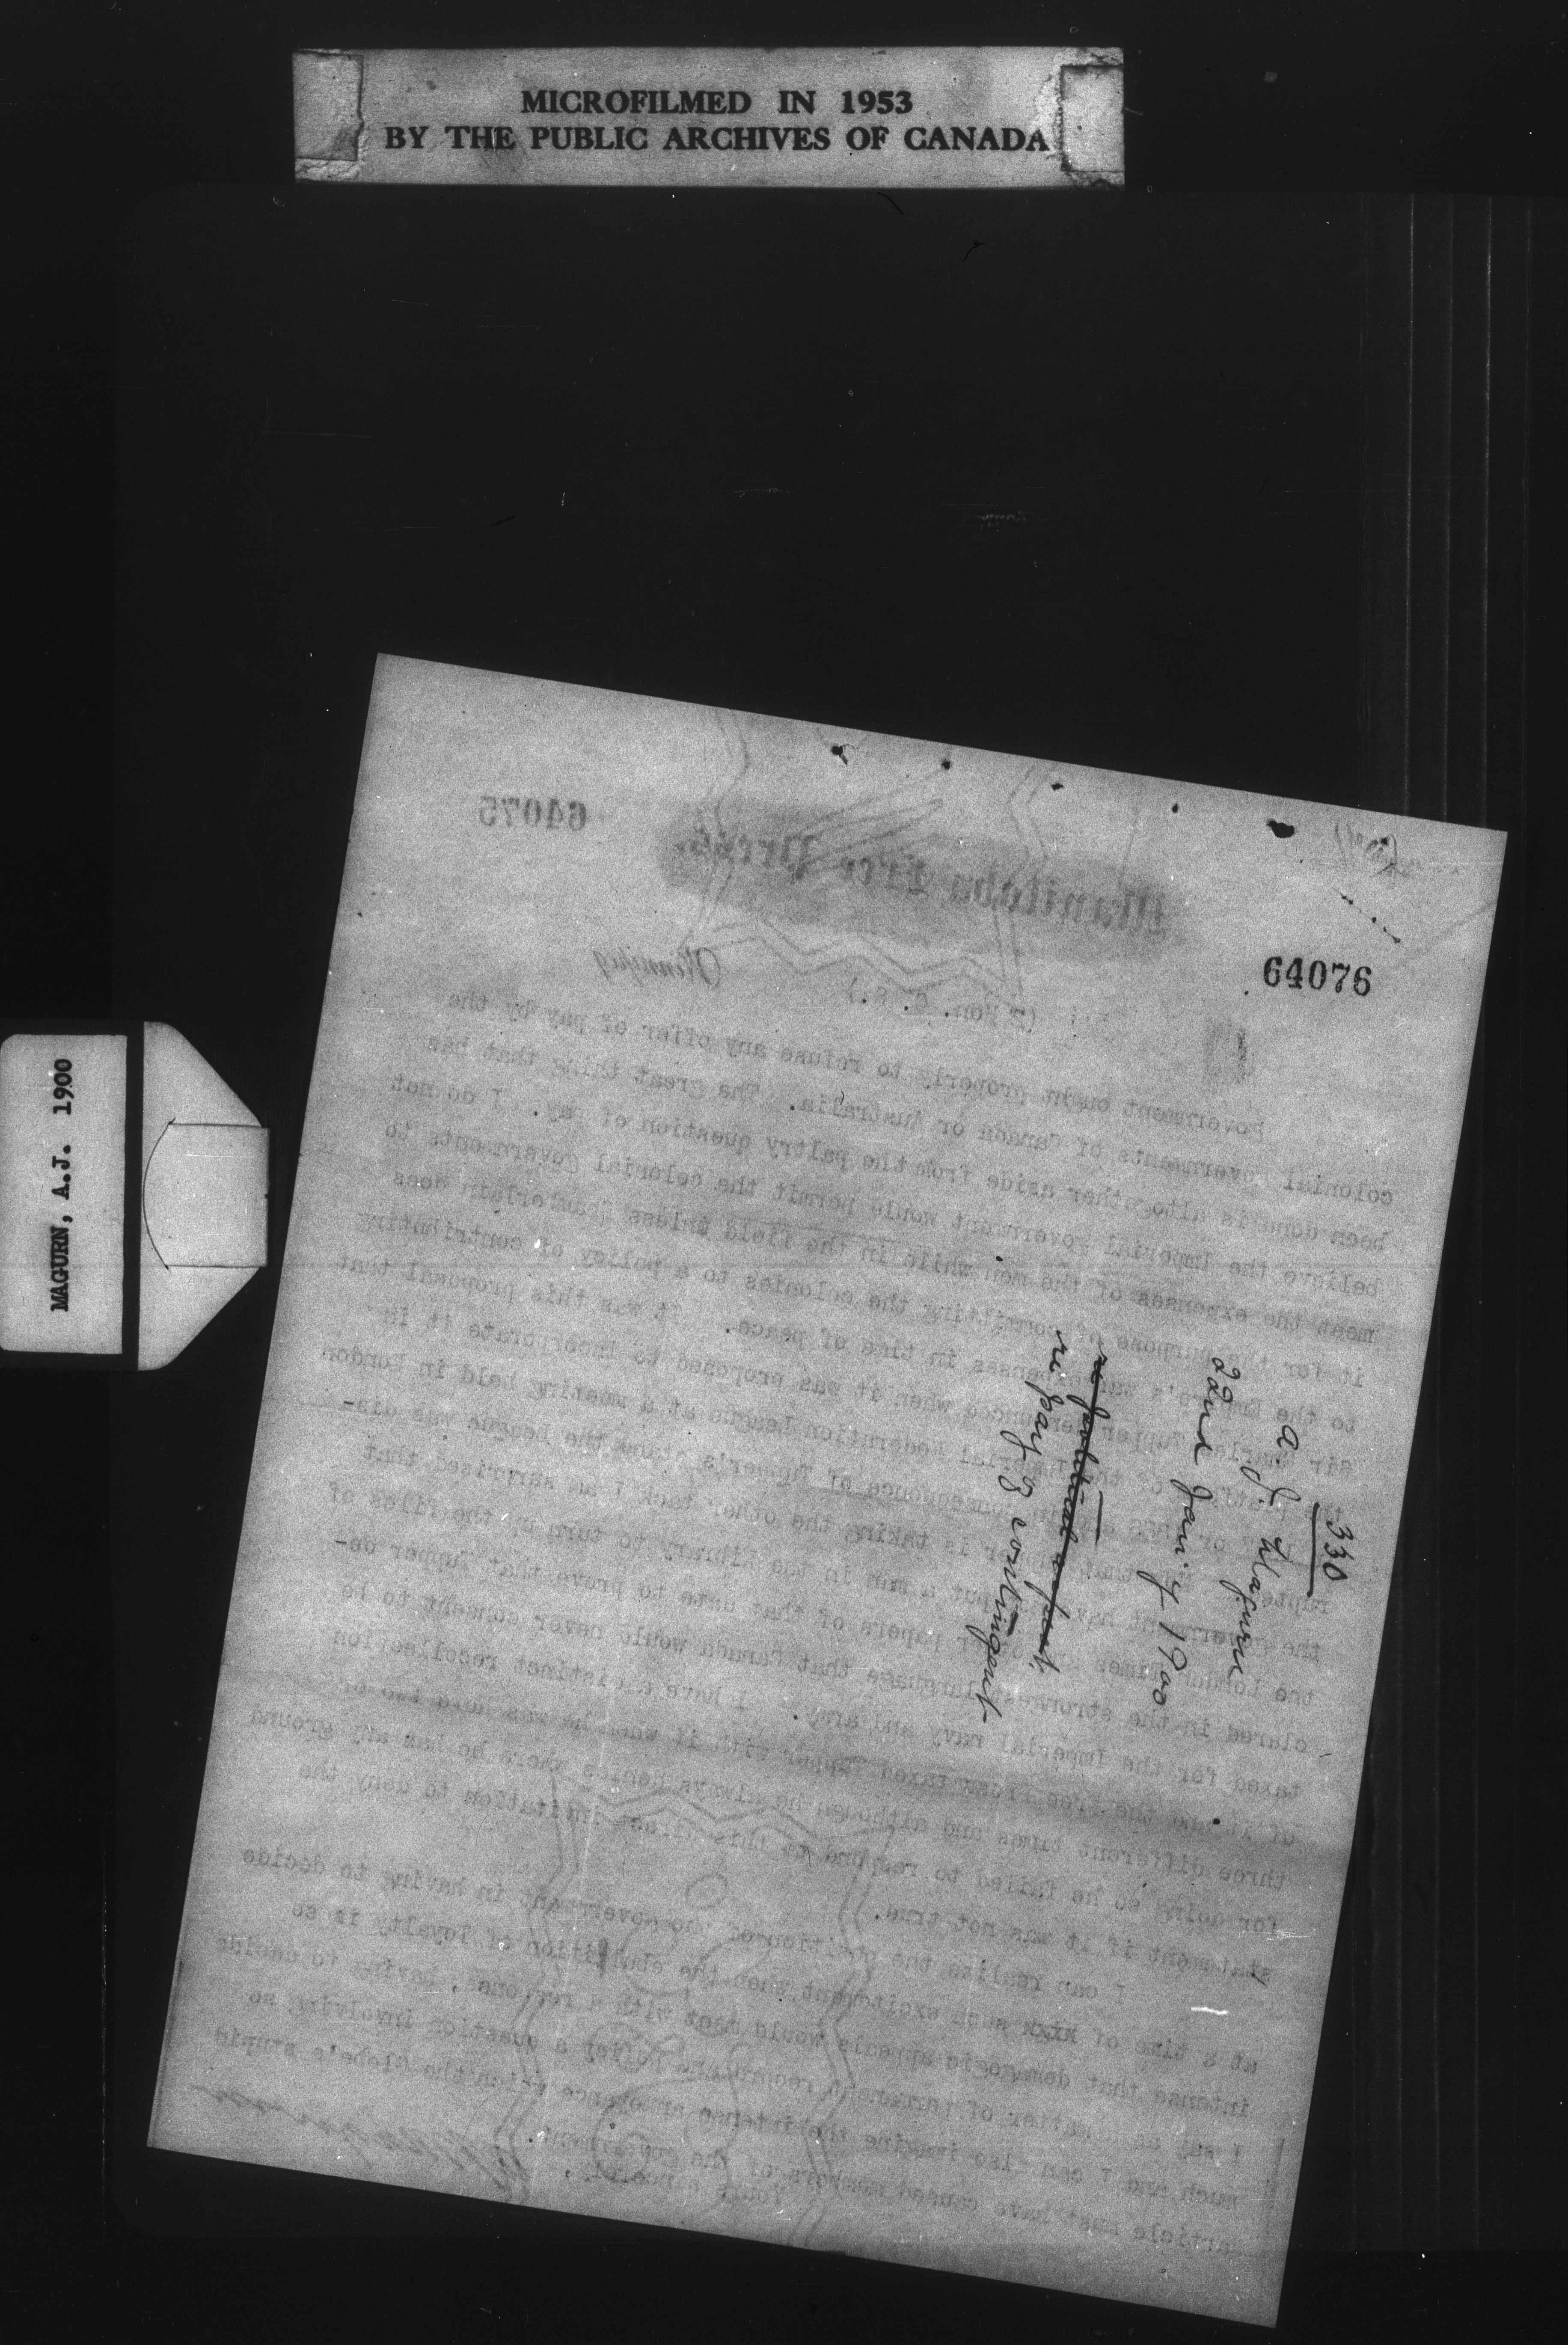 MICROFILMED IN 1953
BY THE PUBLIC ARCHIVES OF CANADA
MAGURN, A.J. 1900
64075
Manitoba Free Press.
64076
Winnipeg
(2 Hon. C. S.)
Government ought properly to refuse any offer of pay by the
colonial governments of Canada or Australia. The great thing that has
been done is altogether aside from the paltry question of pay. I do not
believe the Imperial government would permit the colonial governments to
meet the expenses of the men while in the field unless Chamberlain does
it for the purpose of committing the colonies to a policy of contributing
to the Empire's war expenses in time of peace. It was this proposal that
Sir Charles Tupper denounced when it was proposed to incorporate it in
the of the Imperial Federation League at a meeting held in London
or in consequence of Tupper's the League was dis-
rupted. Now that Tupper is taking the other tack I am surprised that
the government have not put a man in the library to turn up the files of
the London Times and other papers of that date to prove that Tupper de-
clared in the strongest language that Canada would never consent to be
taxed for the Imperial navy and army. I have a distinct recollection
of it and the Free Press taxed Tupper with it when he was here two or
three different times and although he always denies where he has any ground
for doing so he failed to respond to this direct invitation to deny the
statement if it was not true.
I can realize the position of the government in having to decide
at a time of such excitement when the ebullition of loyalty is so
intense that demagogic appeals would meet with a response, having to decide
I say as a matter of permanent record and policy a question involving so
much and I can also imagine the intense annoyance which the Globe's stupid
article must have caused members of the government.
Yours sincerely,
330
A. J. Magurn
22nd Jany 1900
re political
re pay of contingent